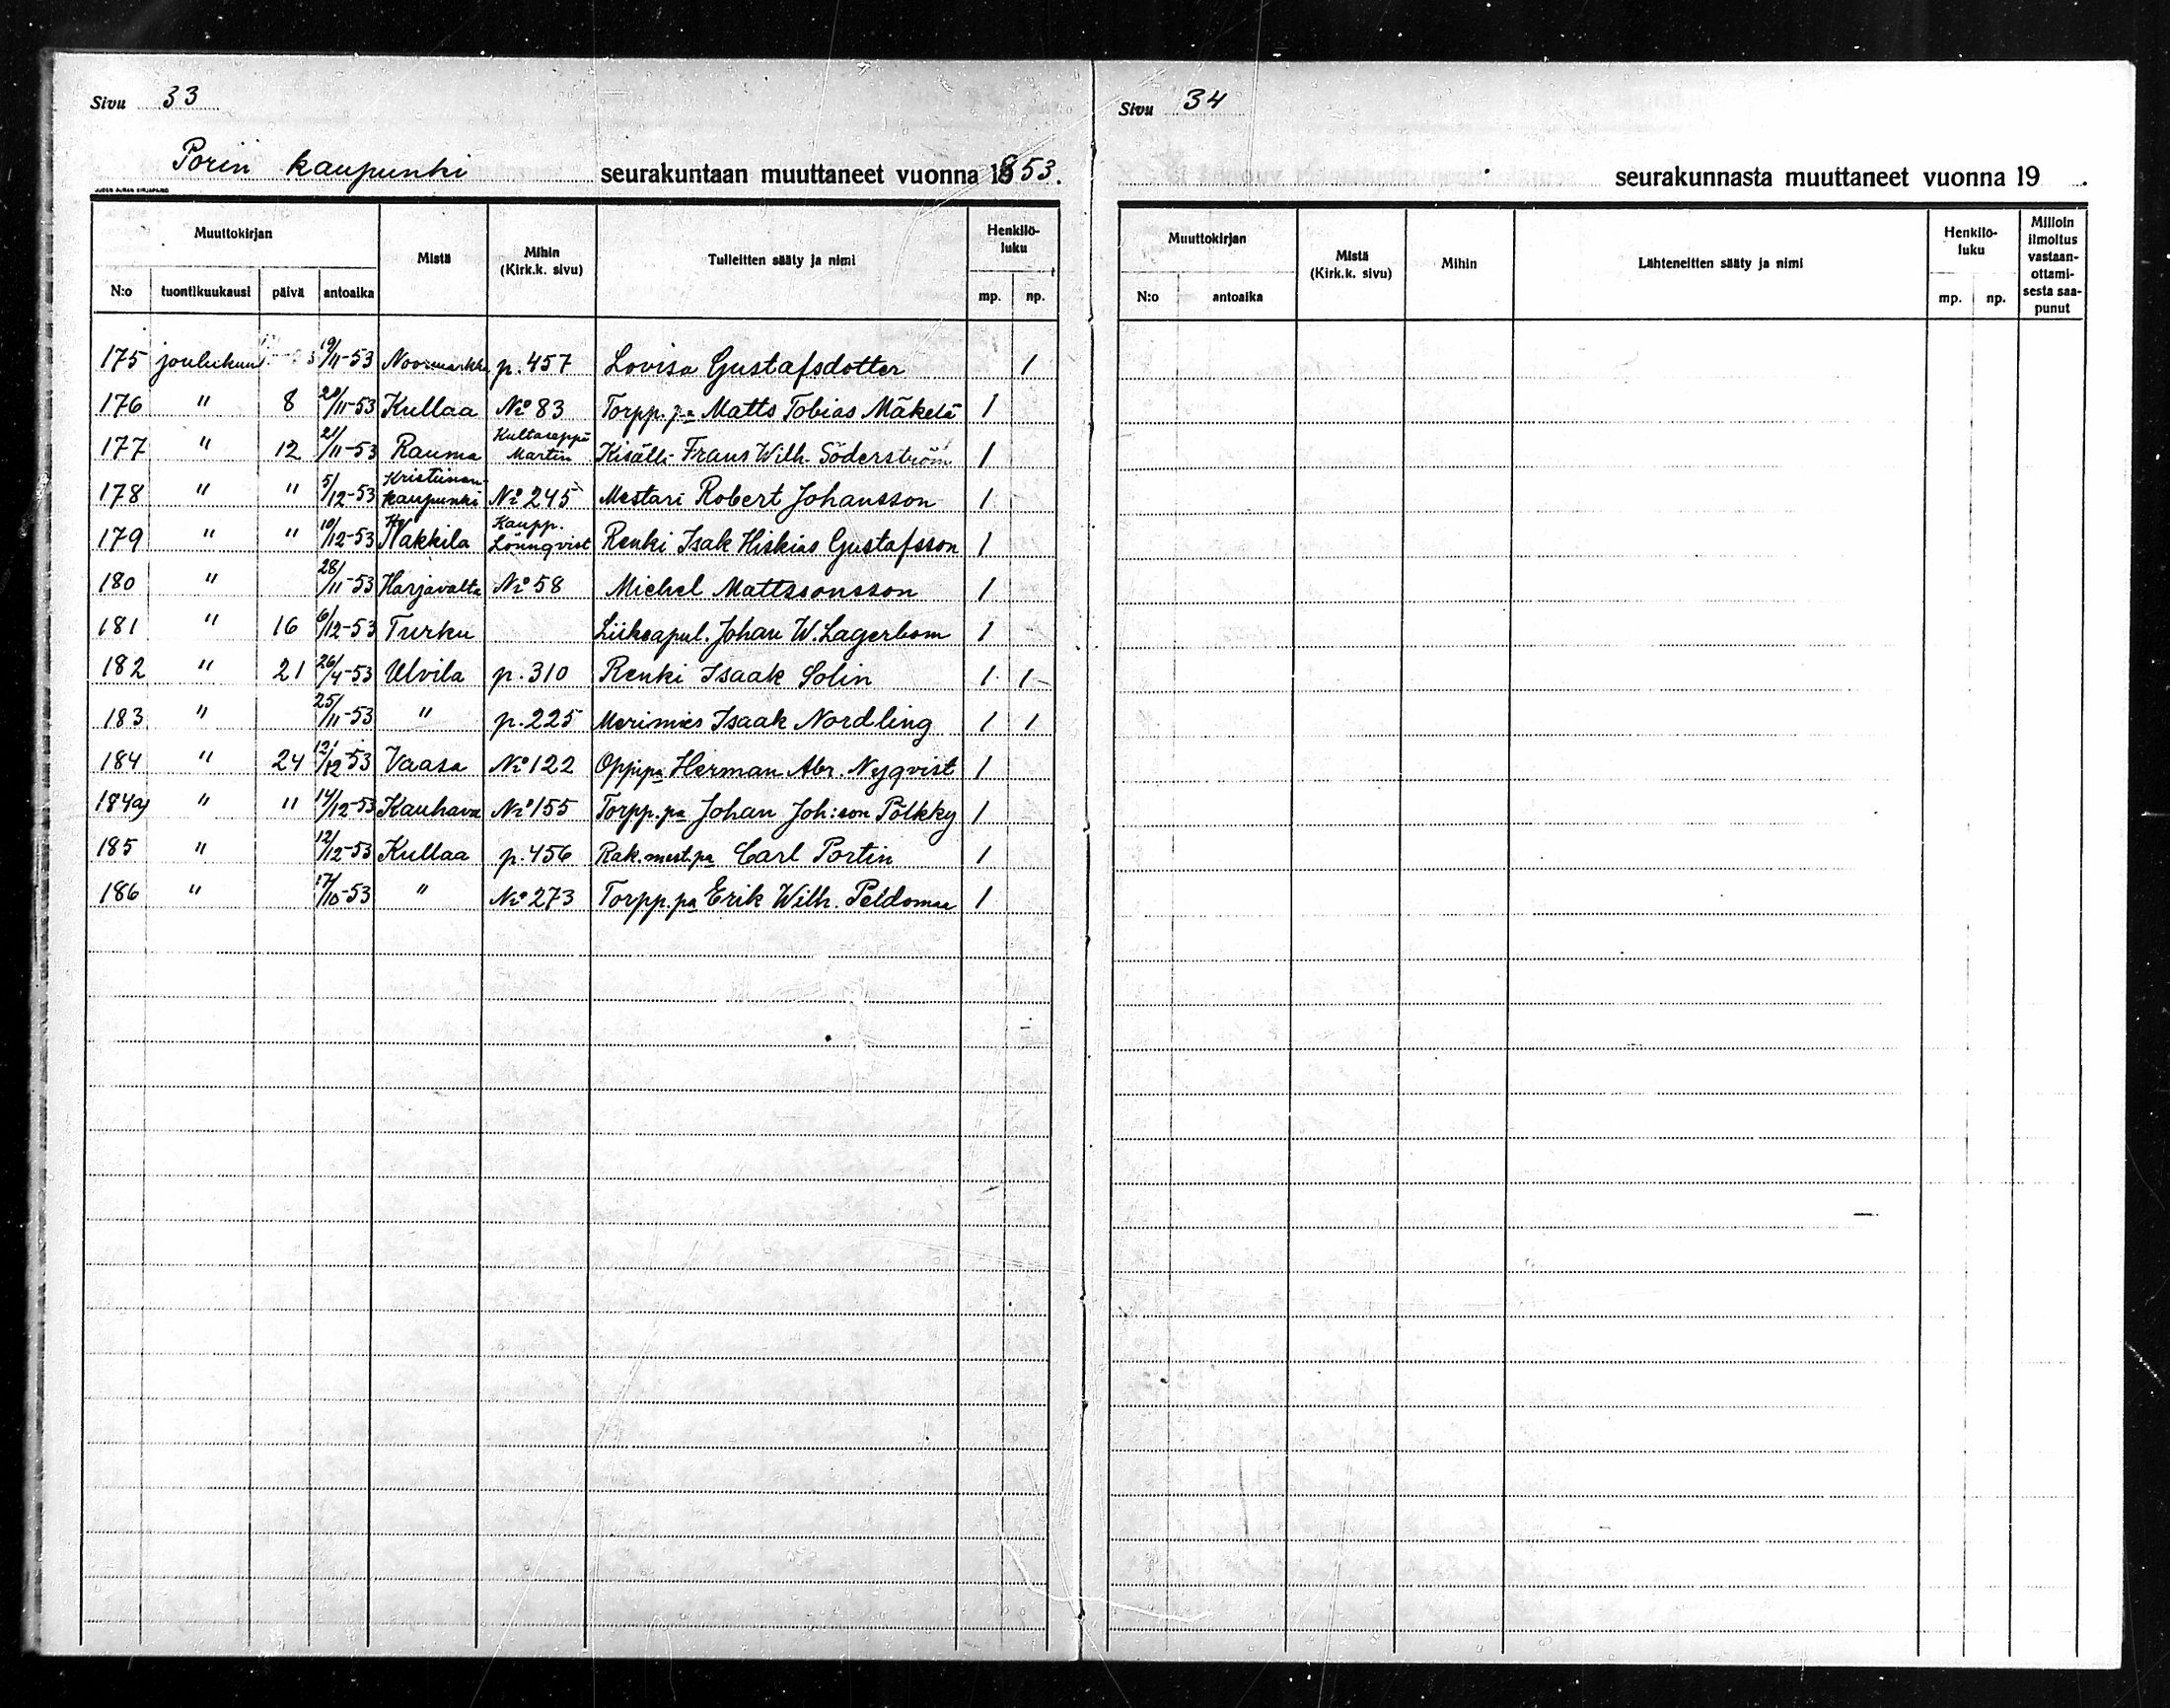 Sivu 33
Porin kaupunki seurakuntaan muuttaneet vuonna 1853.
Muuttokirjan Mistä Mihin (Kirk.k. sivu) Tulleitten sääty ja nimi Henkilö-luku
N:o tuontikuukausi päivä antoaika mp. np.
175 joulukuu 19/11-53 Noormarkku p. 457 Lovisa Gustafsdotter 1
176 " 8 28/11-53 Kullaa No 83 Torpp. pa Matts Tobias Mäkelä 1
177 " 12 21/11-53 Rauma Kultaseppä Martin Kisälli Frans Wilh. Söderström 1
178 " " 5/12-53 Kristiinankaupunki No 245 Mestari Robert Johansson 1
179 " " 10/12-53 Nakkila Kaupp. Lönnqvist Renki Isak Hiskias Gustafsson 1
180 " 28/11-53 Harjavalta No 58 Michel Mattssonsson 1
181 " 16 6/12-53 Turku Liikeapul. Johan W. Lagerbom 1
182 " 21 26/4-53 Ulvila p. 310 Renki Isaak Solin 1 1
183 " 25/11-53 " p. 225 Merimies Isaak Nordling 1 1
184 " 24 12/12-53 Vaasa No 122 Oppipa Herman Abr. Nyqvist 1
184a) " " 14/12-53 Kauhava No 155 Torpp. pa Johan Joh:son Pölkky 1
185 " 12/12-53 Kullaa p. 456 Rak. mest. pa Carl Portin 1
186 " 17/10-53 " No 273 Torpp. pa Erik Wilh. Peldomaa 1
Sivu 34
seurakunnasta muuttaneet vuonna 19 .
Muuttokirjan Mistä (Kirk.k. sivu) Mihin Lähteneitten sääty ja nimi Henkilö-luku Milloin ilmoitus vastaan-ottami-sesta saa-punut
N:o antoaika mp. np.